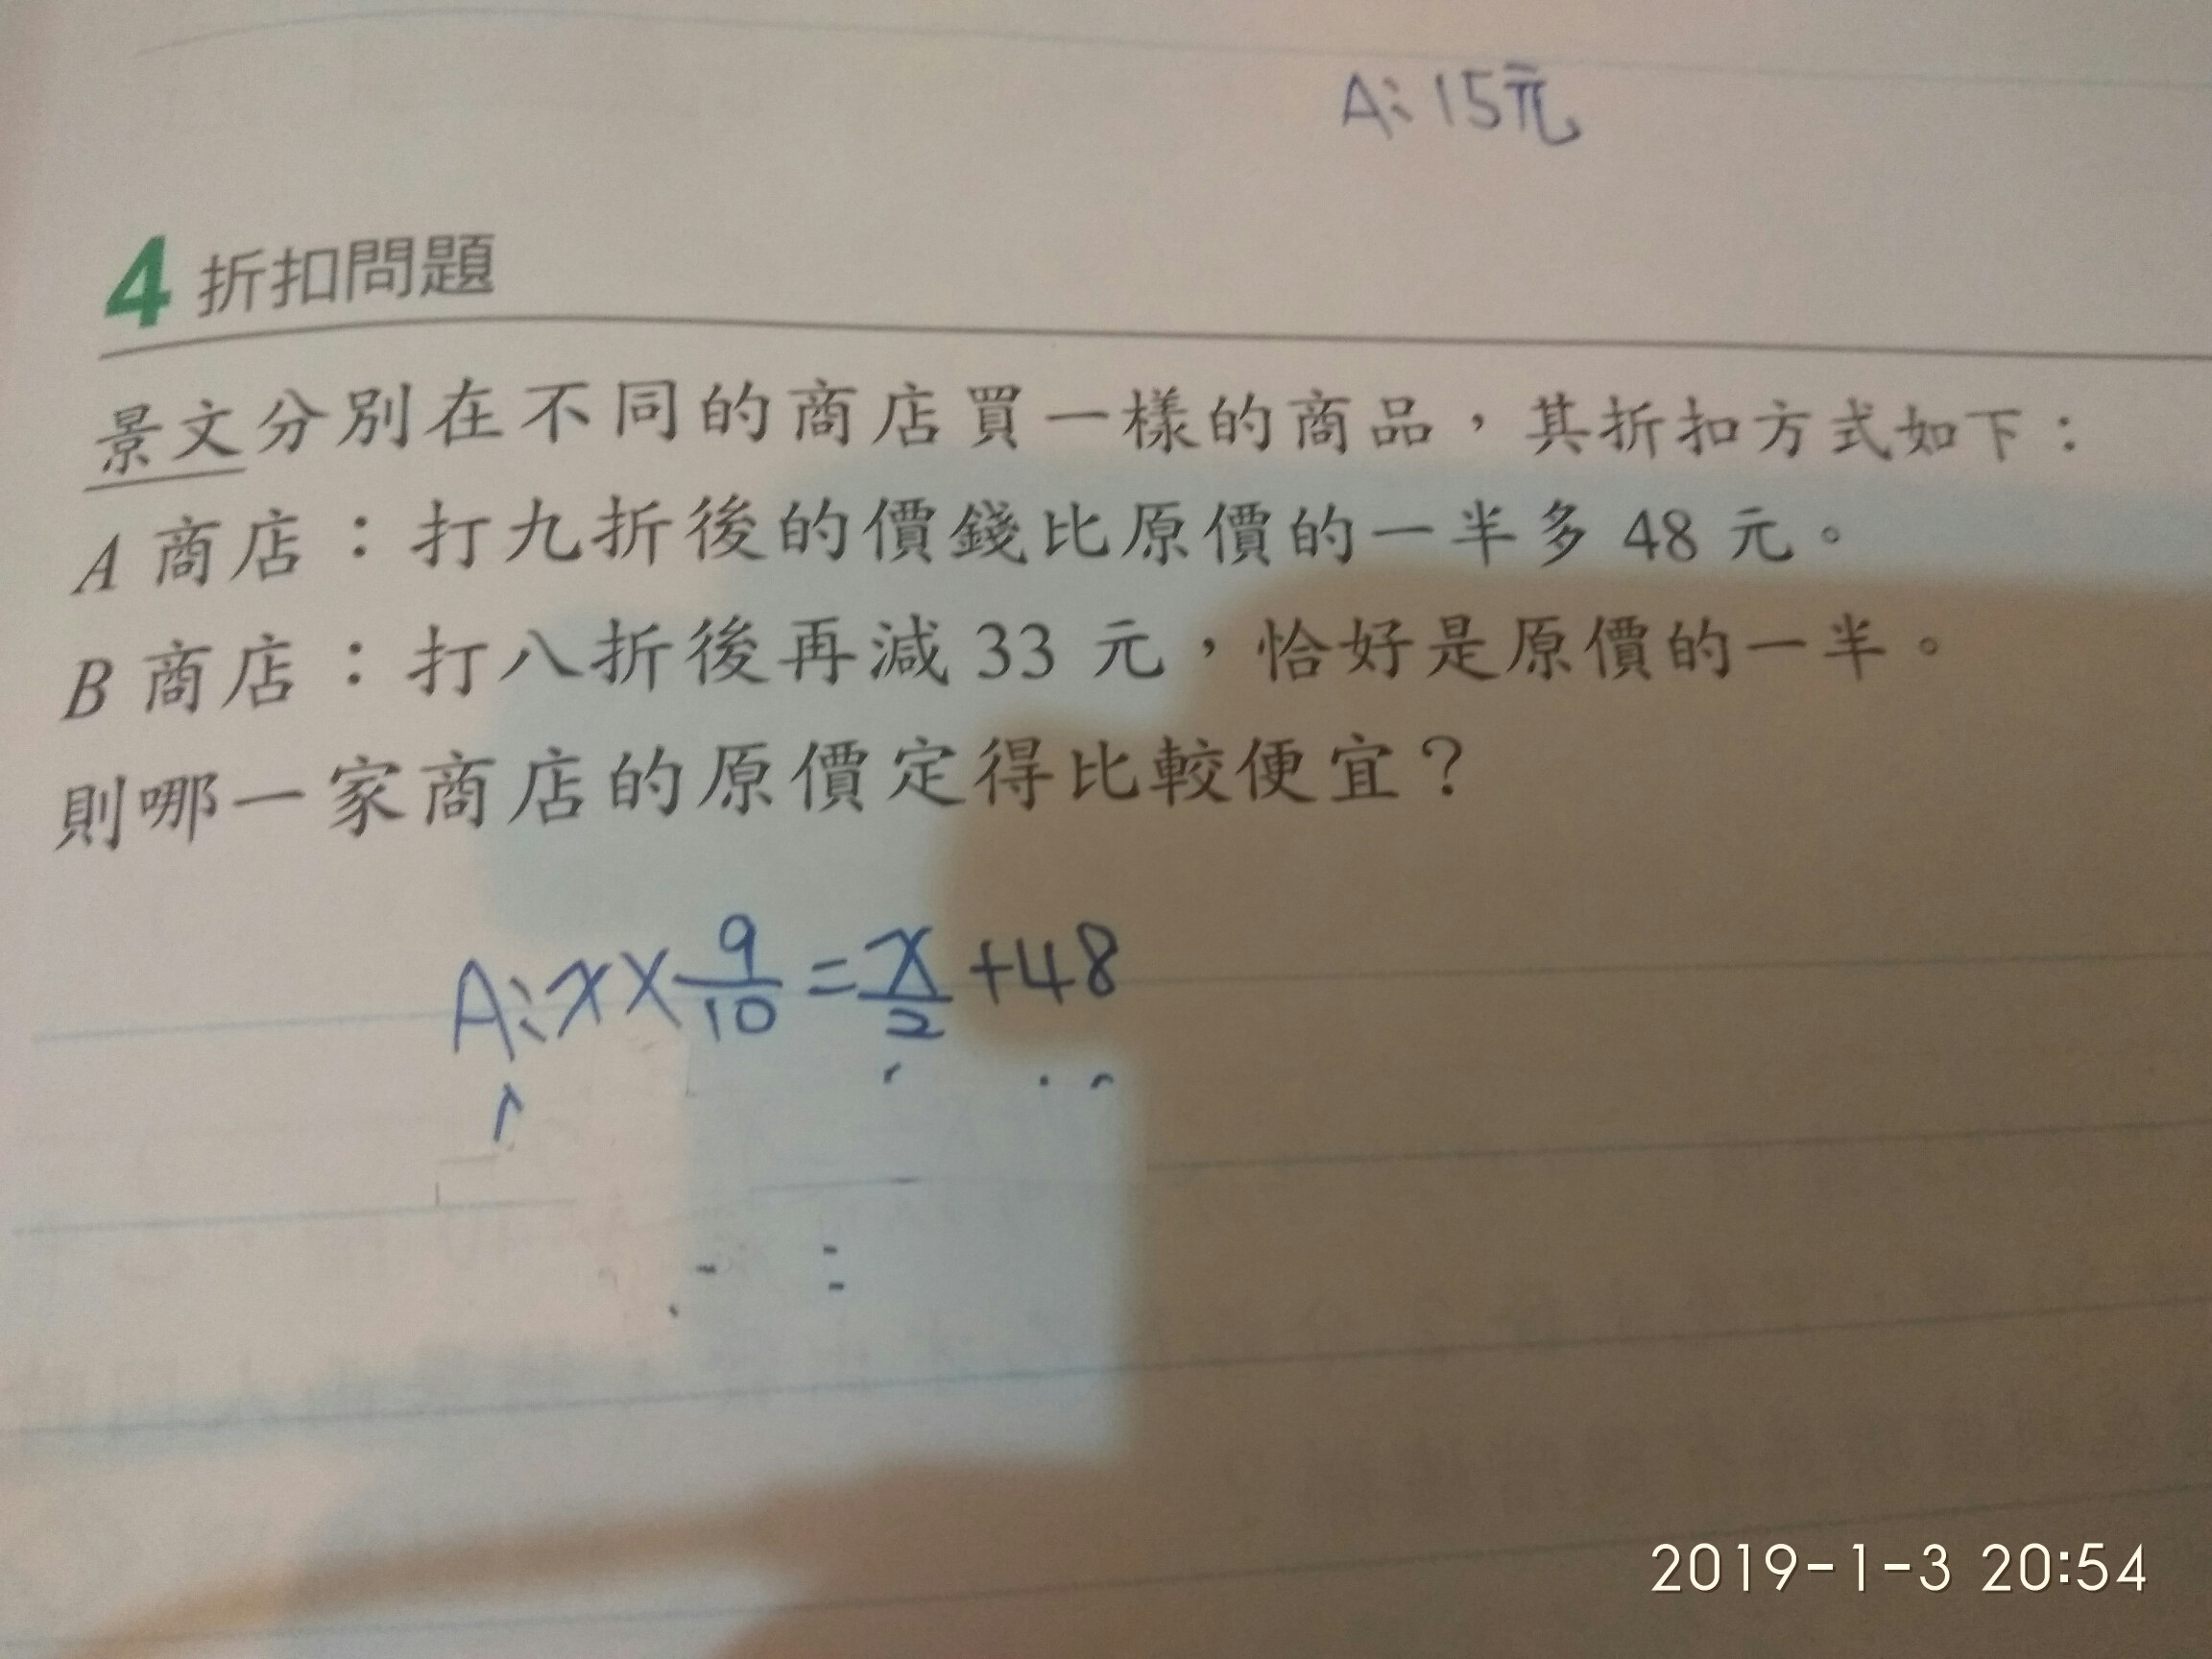 A:15元
4 折扣問題
景文分別在不同的商店買一樣的商品，其折扣方式如下：
A 商店：打九折後的價錢比原價的一半多 48 元。
B 商店：打八折後再減 33 元，恰好是原價的一半。
則哪一家商店的原價定得比較便宜？
A:x×9/10=x/2+48
2019-1-3 20:54